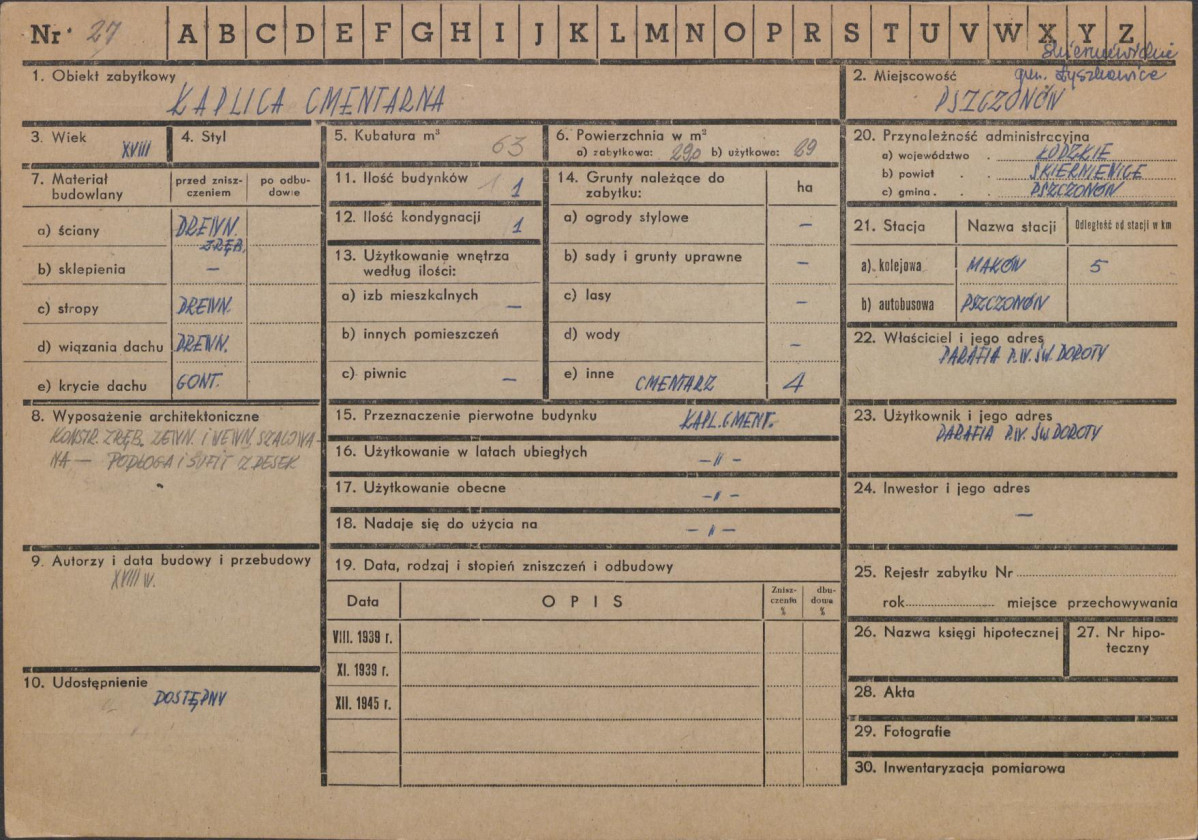 Nr 27 A B C D E F G H I J K L M N O P R S T U V W X Y Z
Skierniewickie
gm. Łyszkowice
1. Obiekt zabytkowy
KAPLICA CMENTARNA
2. Miejscowość
PSZCZONÓW
3. Wiek
XVIII
4. Styl
5. Kubatura m³
63
6. Powierzchnia w m²
a) zabytkowa: 29,0 b) użytkowe: 29
7. Materiał budowlany
przed zniszczeniem
po odbudowie
a) ściany DREWN. ZRĘB.
b) sklepienia –
c) stropy DREWN.
d) wiązania dachu DREWN.
e) krycie dachu GONT.
8. Wyposażenie architektoniczne
KONSTR. ZRĘB. ZEWN. I WEWN. SZALOWA-
NA – PODŁOGA I SUFIT Z DESEK
9. Autorzy i data budowy i przebudowy
XVIII w.
10. Udostępnienie
DOSTĘPNY
11. Ilość budynków 1 1
12. Ilość kondygnacji 1
13. Użytkowanie wnętrza
według ilości:
a) izb mieszkalnych –
b) innych pomieszczeń
c) piwnic –
14. Grunty należące do
zabytku:
ha
a) ogrody stylowe –
b) sady i grunty uprawne –
c) lasy –
d) wody –
e) inne CMENTARZ 4
15. Przeznaczenie pierwotne budynku KAPL. CMENT.
16. Użytkowanie w latach ubiegłych –"–
17. Użytkowanie obecne –"–
18. Nadaje się do użycia na –"–
19. Data, rodzaj i stopień zniszczeń i odbudowy
Data
OPIS
Zniszczenia %
dbudowa %
VIII. 1939 r.
XI. 1939 r.
XII. 1945 r.
20. Przynależność administracyjna
a) województwo . ŁÓDZKIE
b) powiat . . SKIERNIEWICE
c) gmina . . PSZCZONÓW
21. Stacja
Nazwa stacji
Odległość od stacji w km
a). kolejowa MAKÓW 5
b) autobusowa PSZCZONÓW
22. Właściciel i jego adres
PARAFIA P.W. ŚW. DOROTY
23. Użytkownik i jego adres
PARAFIA P.W. ŚW. DOROTY
24. Inwestor i jego adres
–
25. Rejestr zabytku Nr
rok miejsce przechowywania
26. Nazwa księgi hipotecznej
27. Nr hipo-
teczny
28. Akta
29. Fotografie
30. Inwentaryzacja pomiarowa